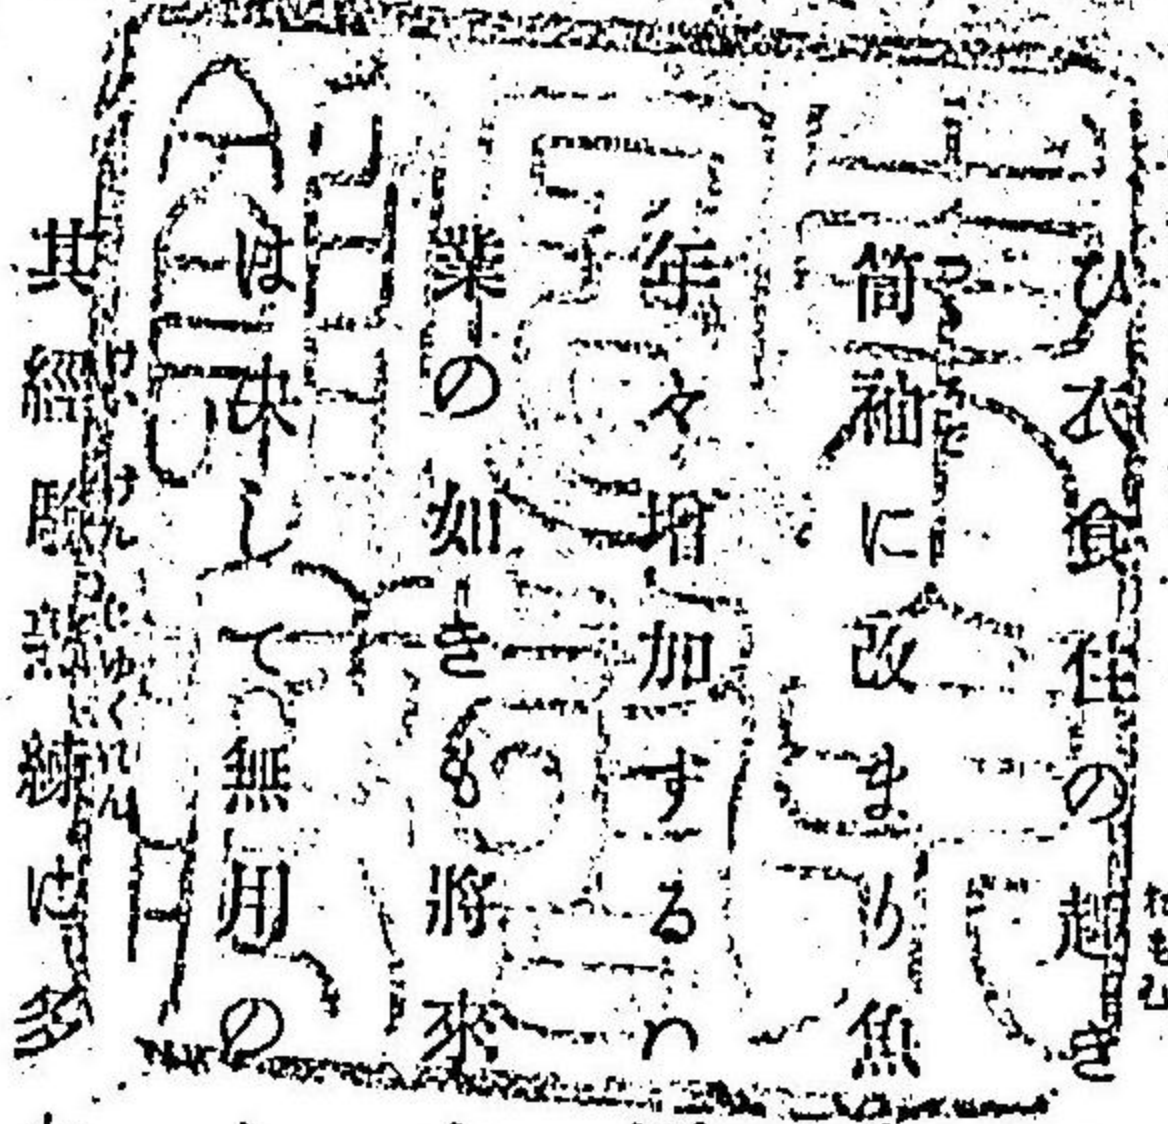 ひ衣食住の趣き
筒袖に改まり魚
年々増加するハ
業の如きも將來
は決して無用の
其經驗熟練は多